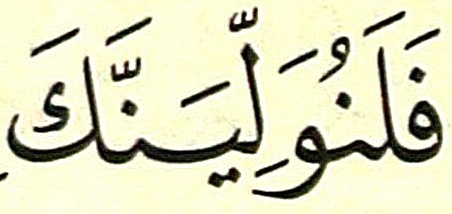 فَلَنُوَلِّيَنَّكَ